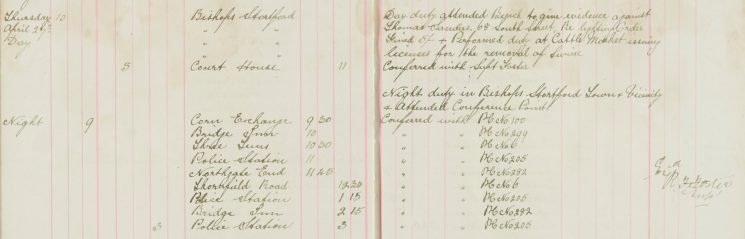 Thursday 10 Bishops Stortford Day duty attended Bench to give evidence against
April 24th " " Thomas 58 South Street, Re lighting Order
Day " " Fined 5/- & Performed duty at Cattle Market issuing
" " licenses for the removal of Swine
3 Court House 11 Conferred with Sergt Foster
Night duty in Bishops Stortford Town & Vicinity
& Attended Conference Points
Night 9 Corn Exchange 9 30 Conferred with PC No 100
Bridge Inn 10 " " PC No 299
Three Tuns 10 30 " " PC No 6
Police Station 11 " " PC No 205
Northgate End 11 45 " " PC No 282
Thornfield Road 12 30 " " PC No 6
Police Station 1 15 " " PC No 205
Bridge Inn 2 15 " " PC No 282
3 Police Station 3 " " PC No 205
Foster